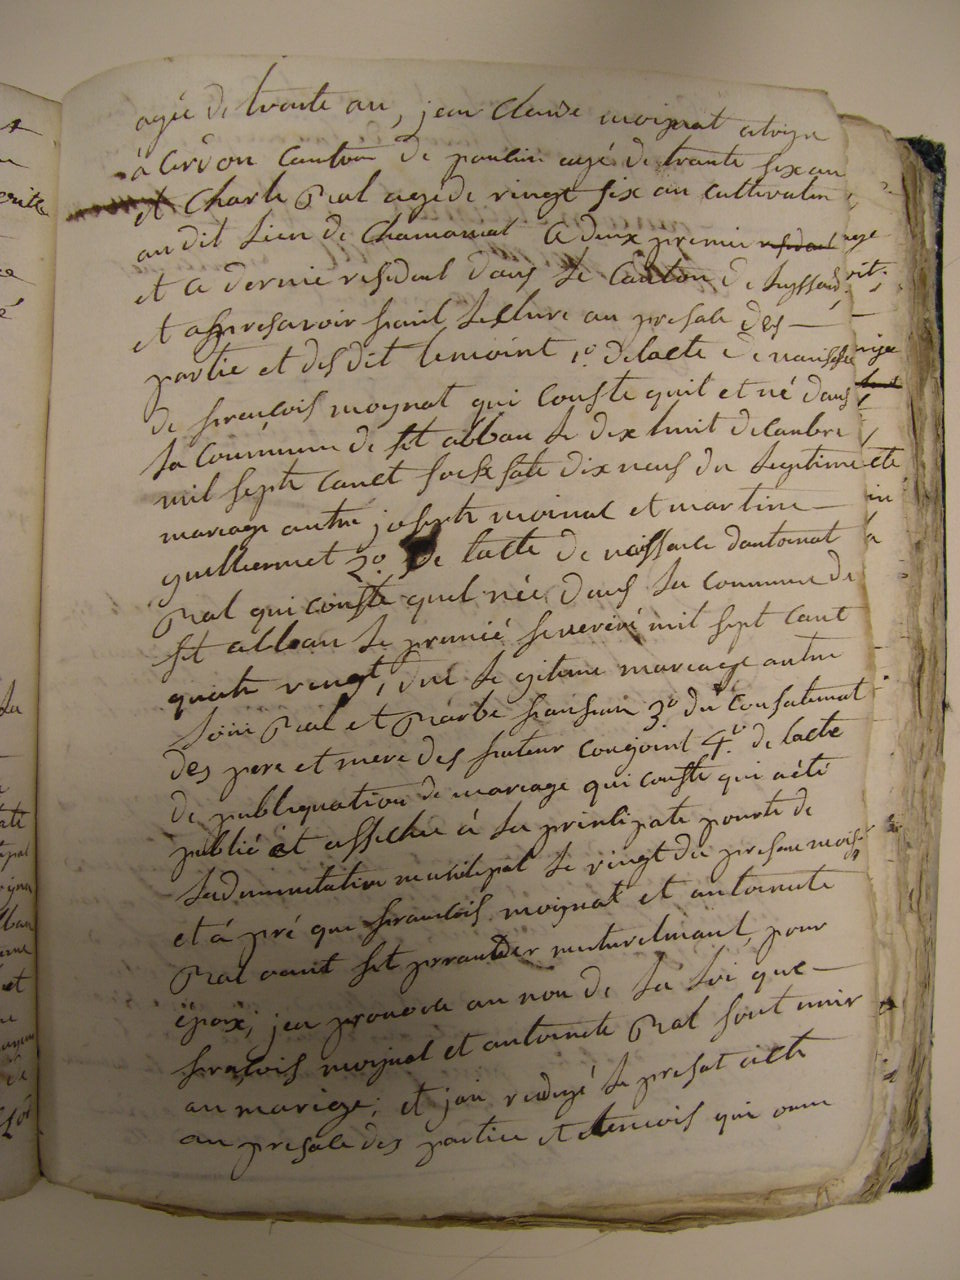 agée de trante an, jean Claude moignat
à Cordon Canton de poulin agé de trante six an
et Charle Ral agé de vingt six an cultivateur
au dit lieu de Chamaniat
et a dernié residant dans le Canton de
et apres avoir faint lecture au presale des
partie et des dit temoint, 1° de lacte de naissase
de francois moynat qui conste quil et né dans
la Commune de St alban le dix huit decanbre
mil septe canct soisesate dix neuf du legitime
mariage antre joseph moinat et martine
guilliermet 2° de lacte de naissance dantoinat
Ral qui conste quel née dans la commune de
St alban le premié feverié mil sept cant
quatre vengt, du legitime mariage antre
Ral et Barbe 3° du consatemat
des pere et mere des futeur conjoint 4° de lacte
de publiquation de mariage qui conste qui a été
publié et affichée à la prinsipate pourte de
ladminitation munisipal le vingt du presan mois
et à pré que francois moynat et antoinete
Ral o aint set prander muturelmant pour
épox, jea pronon au non de la loi que
francois moynat et antoinete Ral sont unir
au mariage, et jeai redigé le presat acte
au presale des partiee et temois qui onm